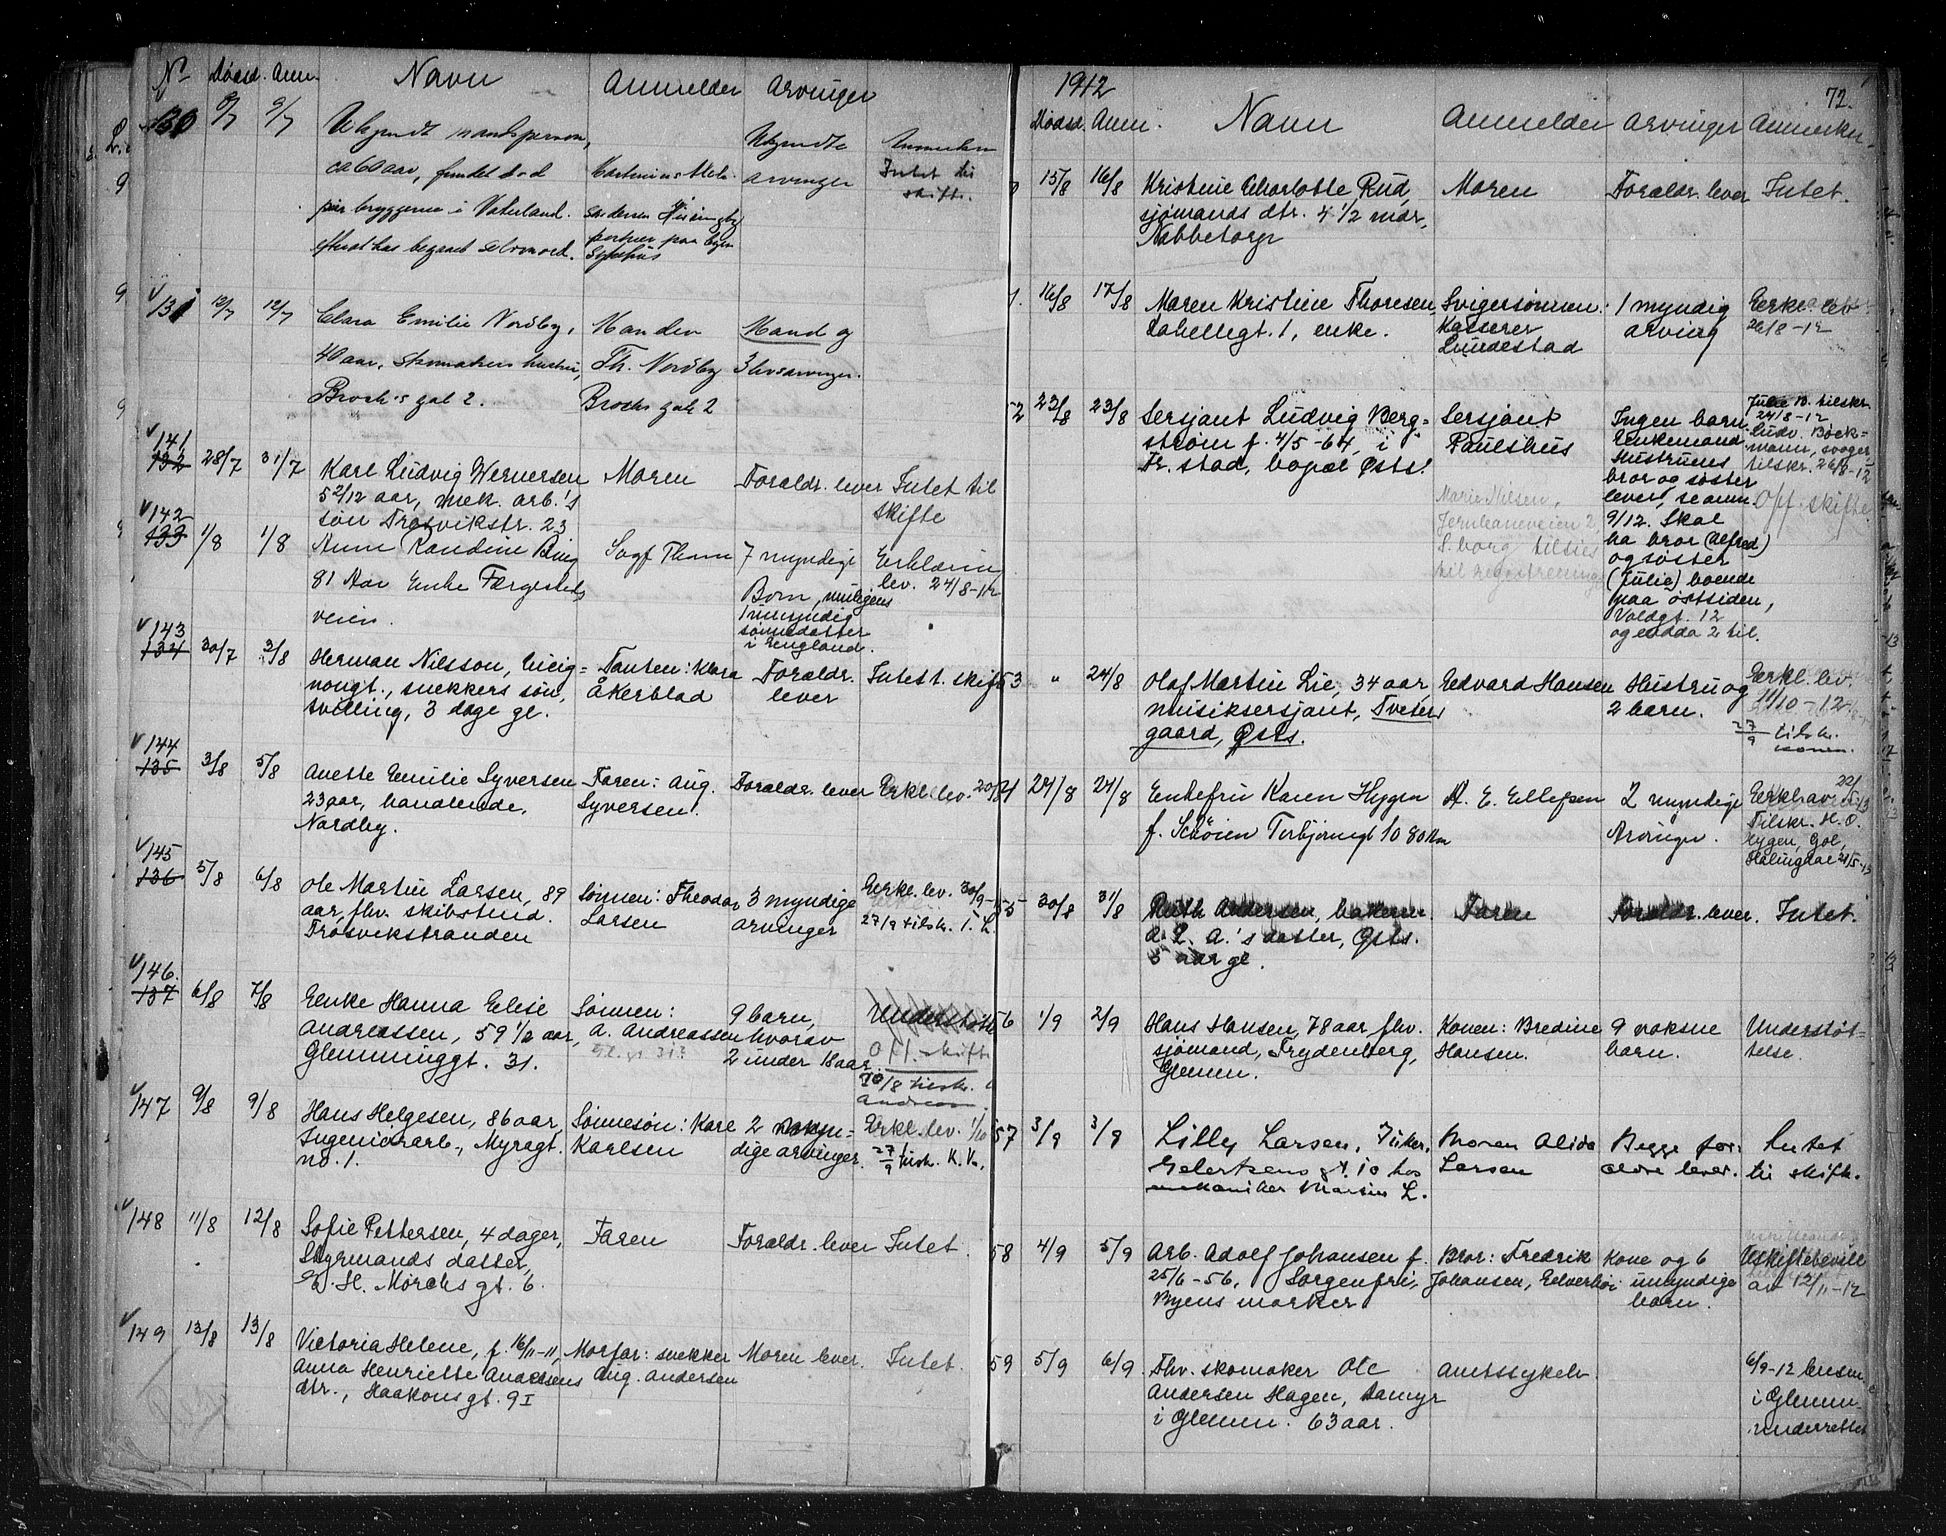 No Dødsd. Anm. Navn Anmelder Arvinger
130 9/7 9/7
Ukjendt mandsperson,
ca 60 aar, fundet død
bryggerne i Vaterland.
begaaet selvmord.
portner paa byens
Sykehus
Ukjendte
arvinger
Intet til
skifte.
131 12/7 12/7 Clara Emilie Nordby, Manden Mand og
40 aar, skomakers hustru, Th. Nordby 3 livsarvinger.
Broch's gat 2. Brochs gate 2
141
132 28/7 31/7 Karl Ludvig Wernersen Moren Forældr. lever Intet til
5 2/12 aar, mek. arb.'s skifte
søn Trosvikstr. 23
142
133 1/8 1/8 Anne Randine 7 myndige Erklæring
81 Aar Enke Færgesteds Børn, muligens lev. 24/8-12
veien. 1 umyndig
sønnedatter
i England.
143
134 30/7 3/8 Herman Nilsson, Tanten: Klara Forældr. Intet t. skifte
snekkers søn, Åkerblad lever
tvilling, 3 dage gl.
144
135 3/8 5/8 Anette Emilie Syversen Faren: Aug. Forældr. lever Erkl. lev.
23 aar, handlende, Syversen.
Nordby.
145
136 5/8 6/8 Ole Martin Larsen, 89 Sønnen: Theodor 3 myndige Erkl. lev. 30/9
aar, fhv. skibstmd. Larsen arvinger 27/9 tilskr. T. L.
Trosvikstranden
146.
137 6/8 7/8 Enke Hanna Elise Sønnen: 9 barn, Understøtt
Andreassen, 59 1/2 aar, A. Andreassen hvorav Off. skifte
Glemminggt. 31. 2 under 18 aar. 10/8 tilskr.
Andreas
147 9/8 9/8 Hans Helgesen, 86 aar, Sønnesøn: Karl 2 myn= Erkl. lev. 1/10
Ingeniørarb., Myragt. Karlsen dige arvinger. 27/9 tilskr. K. K.
no. 1.
148 11/8 12/8 Sofie Pettersen, 4 dager, Faren Forældr. lever Intet.
Styrmands datter,
H. Mørchs gt. 6.
149 13/8 13/8 Victoria Helene, f. 16/11-11, Morfar: snekker Moren lever. Intet.
Anna Henriette Andersens Aug. Andersen
dtr., Haakonsgt. 9 I
1912 72.
Dødsd. Anm. Navn Anmelder Arvinger Anmerkn.
15/8 16/8 Kristine Charlotte Rud, Moren Forældr. lever Intet.
sjømands dtr. 4 1/2 mdr,
Nabbetorp
16/8 17/8 Maren Kristine Thoresen, Svigersønnen: 1 myndig Erkl. lev.
Labellegt. 1, enke. Kasserer arving 26/8-12
Lundestad
52 23/8 23/8 Sersjant Ludvig Berg= Sersjant Ingen barn. Julie B. tilskr.
strøm f. 4/5-64, i Paulshus Enkemand. 24/8-12
Fr.stad, bopæl Østs. Hustruens Ludv. Bøck=
bror og søster mann, svoger,
lever, se anm. tilskr. 26/8-12
9/12. Skal Off. skifte
ha bror (Alfred)
og søster
(Julie) boende
paa østsiden,
Voldgt. 12
og endda 2 til.
Marie Nilsen,
Jernbaneveien 2
S.borg tilsies
til registrering
53 " 24/8 Olaf Martin Lie, 34 aar Edvard Hansen Hustru og Erkl. lev.
musiksersjant, Tveter 2 barn. 11/10-12
gaard, Østs. 27/9 tilskr.
konen.
24/8 24/8 Enkefru Karen Hygen A. E. Ellefsen 2 myndige
f. Schøien Torbjørnsgt 10 80 Aar Arvinger.
Tilskr. H. O.
Hygen, Gol,
Halingdal 21/5-13
55 30/8 31/8 Ruth Andersen, bakerm. Faren Forældr. lever. Intet.
A. L. A.'s datter, Østs.
5 aar gl.
56 1/9 2/9 Hans Hansen, 78 aar, fhv. Konen: Bredine 9 voksne Understøt=
sjømand, Frydenberg, Hansen. barn. telse.
Glemm.
57 3/9 3/9 Lilly Larsen, Moren Alida Begge for: Intet
gt. 10 hos Larsen ældre lever. til skifte.
mekaniker Marius L.
58 4/9 5/9 Arb. Adolf Johansen f. Bror: Fredrik Kone og 6 Uskiftebevill
25/6-56, Sorgenfri, Johansen, umyndige av 12/11-12
Byens marker barn.
59 5/9 6/9 Fhv. skomaker Ole Amtssykeh. 6/9-12 lensm.
Andersen Hagen, Damyr i Glemm.
i Glemm. 63 aar. underrettet